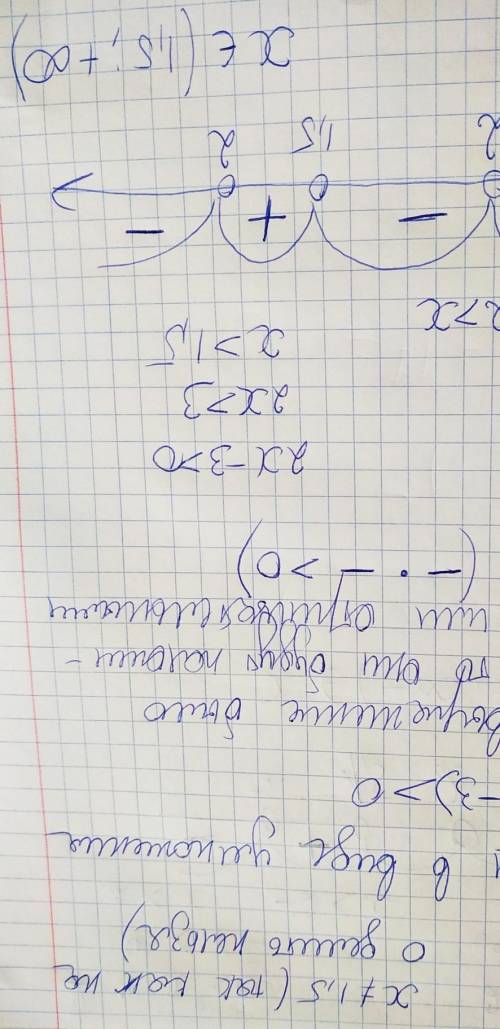 x ≠ 1,5 (так как на
0 делить нельзя)
в виде умножения
-3) > 0
Выражение было
то они будут положи-
или отрицательными
(- · - > 0)
2x - 3 > 0
2x > 3
x > 1,5
2 > x
- + -
2 1,5 2
x ∈ (1,5; +∞)